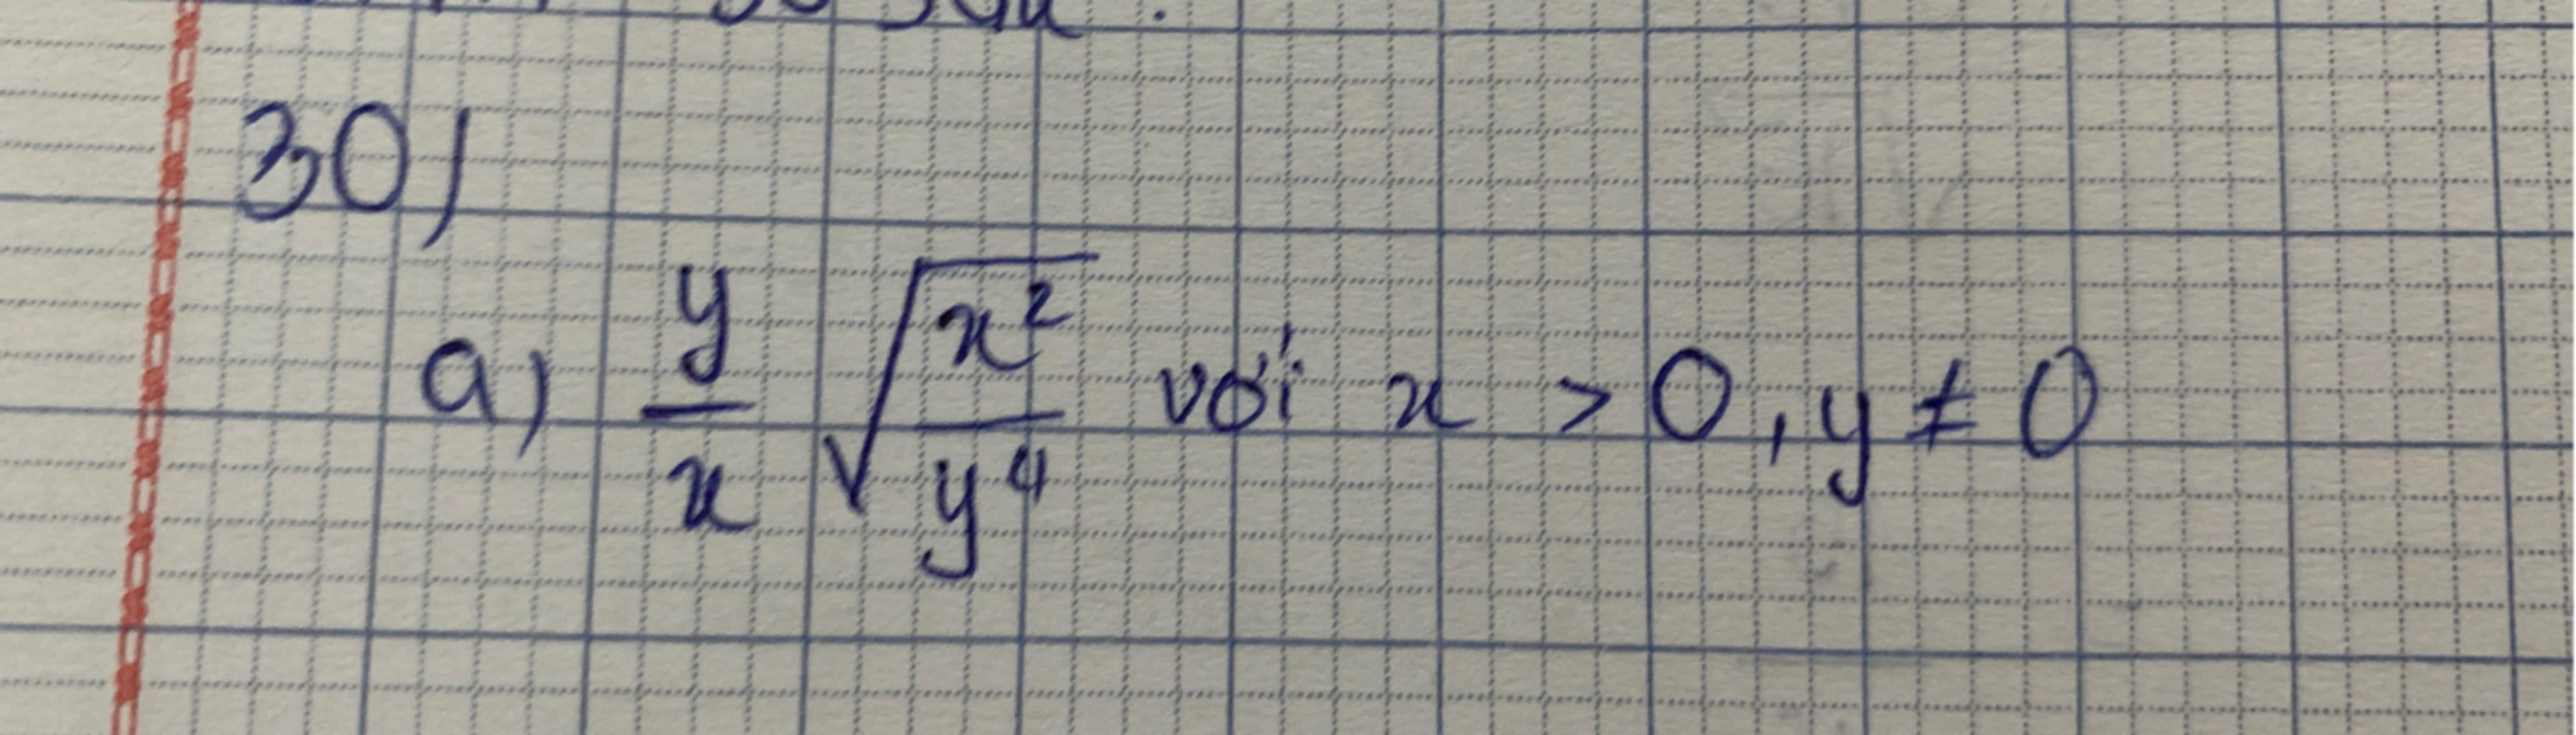 30)
a) y/x √(x²/y⁴) với x > 0, y ≠ 0